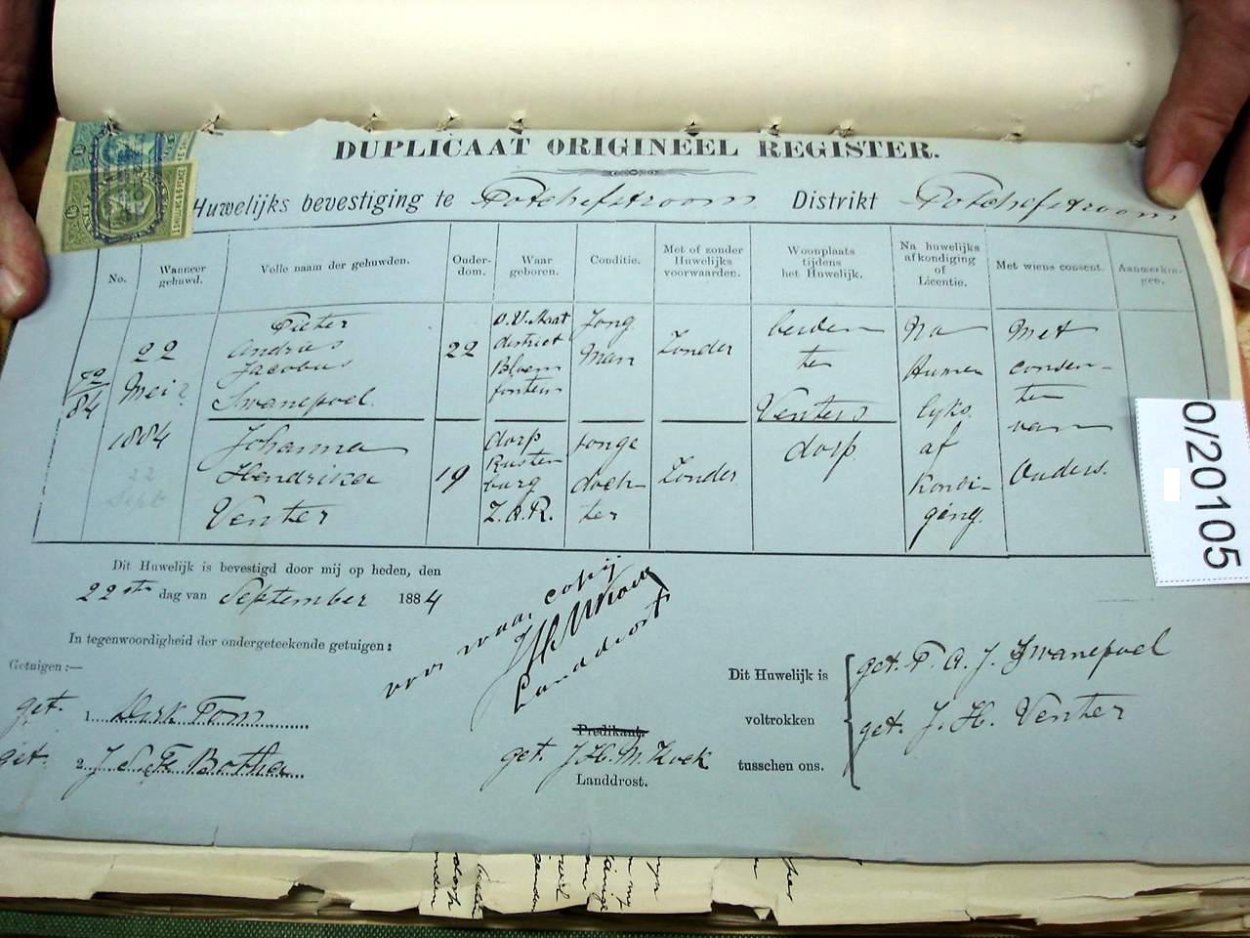 DUPLICAAT ORIGINEEL REGISTER.
Huwelijks bevestiging te Potchefstroom Distrikt Potchefstroom
No.
Wanneer gehuwd.
Volle naam der gehuwden.
Ouderdom.
Waar geboren.
Conditie.
Met of zonder Huwelijks voorwaarden.
Woonplaats tijdens het Huwelijk.
Na huwelijks afkondiging of Licentie.
Met wiens consent.
Aanmerkingen.
72/84
22
Mei?
1884
22
Sept
Pieter
Andries
Jacobus
Swanepoel
22
O.V. Staat
district
Bloem
fontein
Jong
Man
Zonder
beiden
te
Venters
dorp
Na
Huwe
lyks
af
kondi-
ging.
Met
consen-
ten
van
Ouders.
Johanna
Hendrika
Venter
19
dorp
Rusten
burg
Z.A.R.
Jonge
doch
ter
Zonder
Dit Huwelijk is bevestigd door mij op heden, den
22ste dag van September 1884
In tegenwoordigheid der ondergeteekende getuigen:
Getuigen:—
get. 1. Derk Tom
get. 2. J S F Botha
voor waar copij
Landdrost
Predikant.
get. J. H. M. Kock
Landdrost.
Dit Huwelijk is
voltrokken
tusschen ons.
get. P. A. J. Swanepoel
get. J. H. Venter
0/20105